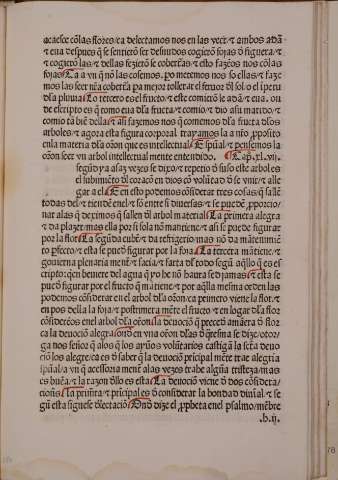 acaesce cõlas flores/ca delectamos nos en las veer⁊ ⁊ ambos adã⁊
⁊ eua despues q̃ se sentierõ ser desnudos cogierõ fojas đ figuera/⁊
⁊ cogierõ las ⁊ dellas fezierõ se coberteras/⁊ esto fazeos nos cõlas
fojas/Ca a vn q̃ no las cosemos. po metemos nos so ellas ⁊ faze
mos las seer nr̃a cobertera pa mejor tollerar el feruor đl sol o el ipetu
đla pluuia/Lo tercero es el fructo/⁊ este comierõ le adã ⁊ eua. on
de escripto es q̃ como eua đla fructa ⁊ comio/⁊ dio a su marido/⁊
comio tã biẽ della/⁊ assi fazemos nos q̃ comemos đla fructa đlos
arboles/⁊ agora esta figura corporal trayamos la a nr̃o proposito
en la materia đla oracõn que es intellectual/⁊ spũal/⁊ pensemos la
oracõn seer vn arbol intellectual mente entendido. Cap. xl. vij.
segũd ya asaz vezes se dixo/⁊ repetio đ suso este arbol es
el lubimiẽto đl coraçõ en dios cõ volũtad đ se vnir/⁊ alle
gar a el/E en esto podemos cõsiderar tres cosas/q̃ salẽ
todas del/⁊ tiende enel/⁊ so entre si diuersas/⁊ se puedẽ proporcio
nar alas q̃ deximos q̃ sallen đl arbol material/La primera alegra
⁊ da plazer mas ella por si sola nõ mantiene/⁊ asi se puede figurar
por la flor/La segũda cubre ⁊ da refrigerio mas nõ da mãtenimiẽ
to perfecto/⁊ esta se puede figurar por la foja/La tercera mãtiene/⁊
gouierna plenaria ment⁊ facia/⁊ farta đl todo segũ aq̃llo q̃ es es
cripto: q̃en beuiere del agua q̃ yo he nõ haura sed jamas/⁊ esta se
puede figurar por el fructo q̃ mãtiene/⁊ por aq̃lla mesma orden las
podemos cõsiderar en el arbol đla oracõn/ca primero viene la flor/⁊
en pos della la foja/⁊ postrimera mẽte el fructo/⁊ en logar đla flor
cõsideremos enel arbol đla oracõn/la deuociõ q̃ precede amãera đ flor
ca la deuociõ alegra/onde en vna oracõn đlas đ q̃resma se dize/otor
ga nos señor q̃ alos q̃ los ayũos volũtarios castigã la sctã deuo
ciõ los alegre/ca es đ saber q̃ la deuociõ prĩcipal mẽte trae alegria
spũal/a vn q̃ accessoria mẽte alas vezes trahe algũa tristeza/mas
es buẽa/⁊ la razon đllo es esta/La deuociõ viene đ dos cõsidera
ciones/la primera ⁊ prĩcipal es đ considerar la bondad diuĩal ⁊ se
gũ esta siguese delectaciõ/Onde dize el propheta enel psalmo/mẽbre
.h.ij.